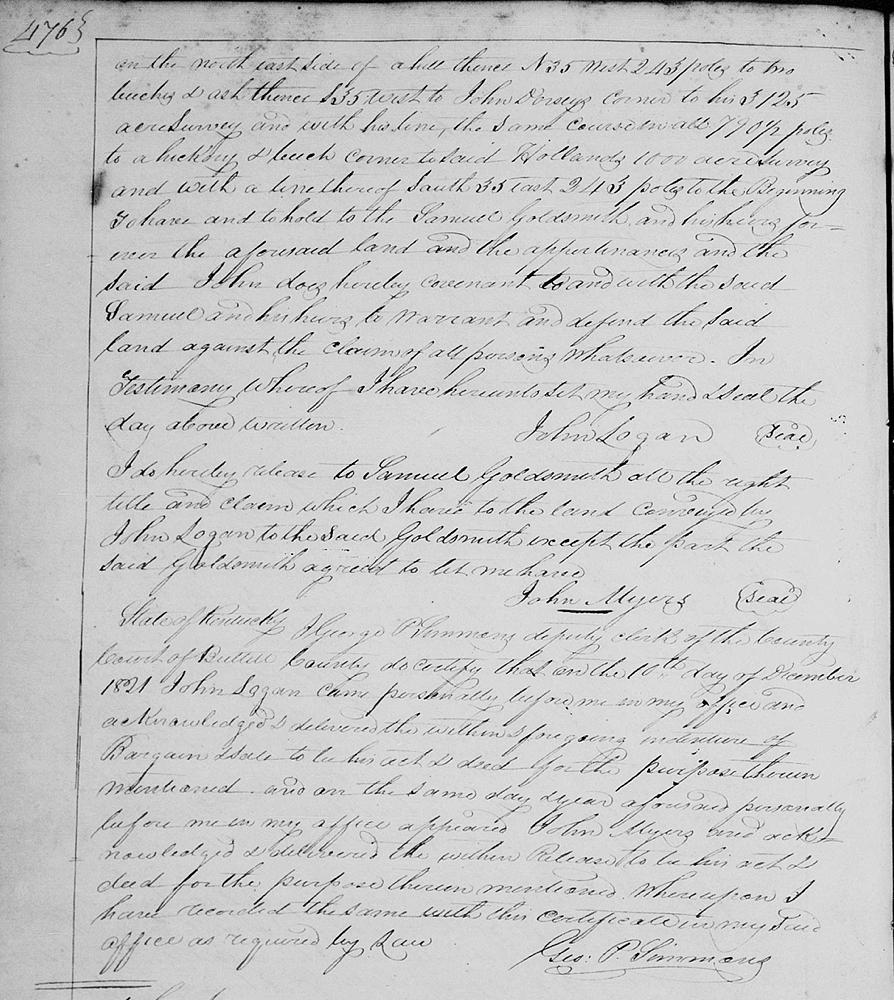 476
on the north east side of a hill thence N35 West 243 poles to two
beeches & ash thence S35 west to John Dorseys corner to his 3125
acre Survey and with his line, the same course in all 790½ poles
to a hickory & beech corner to said Hollands 1000 acre survey
and with a line thereof South 35 east 243 poles to the Beginning
To have and to hold to the Samuel Goldsmith and his heirs for=
ever the aforesaid land and the appertenances and the
said John does hereby covenant to and with the said
Samuel and his heirs to Warrant and defend the said
land against the claim of all persons whatsoever. In
Testimony whereof I have hereunto set my hand & seal the
day above written.
John Logan (Seal)
I do hereby release to Samuel Goldsmith all the right
title and claim which I have to the land conveyed by
John Logan to the said Goldsmith except the part the
said Goldsmith agreed to let me have
John Myers (Seal)
State of Kentucky I George P Simmons deputy clerk of the County
Court of Bullitt County do certify that on the 10th day of December
1821 John Logan came personally before me in my office and
acknowledged & delivered the within & foregoing indenture of
Bargain & sale to be his act & deed for the purpose therein
mentioned and on the same day & year aforesaid personally
before me in my office appeared John Myers and ack=
nowledged & delivered the within Release to be his act &
deed for the purpose therein mentioned Whereupon I
have recorded the same with this certificate in my said
office as required by Law
Geo: P. Simmons